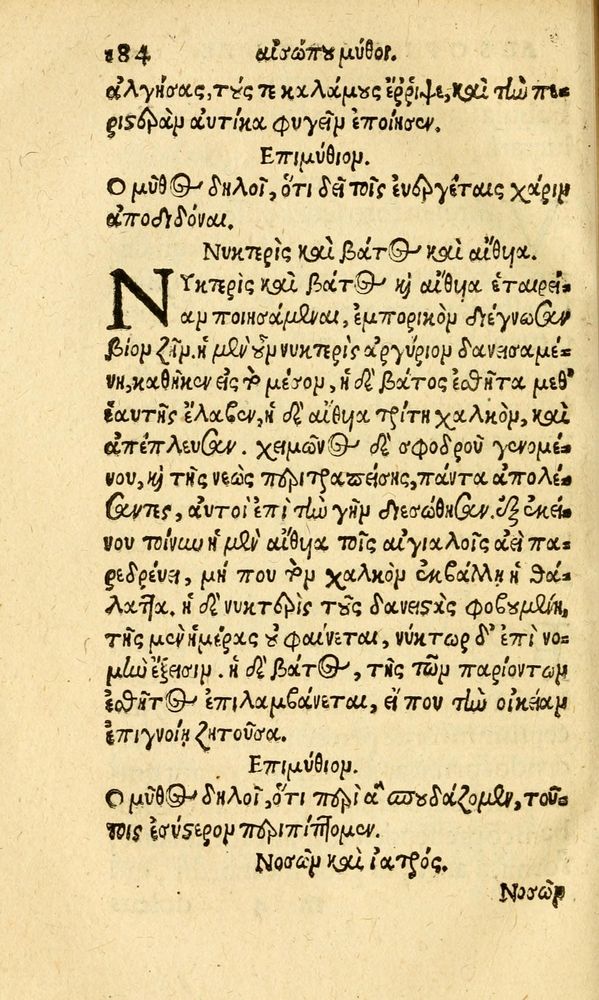 184 αἰσώπου μῦθοι.
ἀλγήσας, τούς τε καλάμους ἔῤῥιψε, καὶ τὴν πε-
ριστερὰν αὐτίκα φυγεῖν ἐποίησεν.
Επιμύθιον.
Ο μῦθος δηλοῖ, ὅτι δεῖ τοῖς ἐυεργέταις χάριν
ἀποδιδόναι.
Νυκτερὶς καὶ βάτος καὶ αἴθυια.
ΝΥκτερὶς καὶ βάτος καὶ αἴθυια ἑταιρεί-
αν ποιησάμεναι, ἐμπορικὸν διέγνωσαν
βίον ζῇν. ἡ μὲν οὖν νυκτερὶς ἀργύριον δανεισαμέ-
νη, καθῆκεν εἰς τὸ μέσον, ἡ δὲ βάτος ἐσθῆτα μεθ'
ἑαυτῆς ἔλαβεν, ἡ δὲ αἴθυια τρίτη χαλκὸν, καὶ
ἀπέπλευσαν. χειμῶνος δὲ σφοδροῦ γενομέ-
νου, καὶ τῆς νεὼς περιτραπείσης, πάντα ἀπολέ-
σαντες, αὐτοὶ ἐπὶ τὴν γῆν διεσώθησαν. ἐξ ἐκεί-
νου τοίνυν ἡ μὲν αἴθυια τοῖς αἰγιαλοῖς ἀεὶ πα-
ρεδρένει, μή που τὸν χαλκὸν ἐκβάλλῃ ἡ θά-
λαττα. ἡ δὲ νυκτερὶς τοὺς δανειστὰς φοβουμένη,
τῆς μὲν ἡμέρας οὐ φαίνεται, νύκτωρ δ' ἐπὶ νο-
μὴν ἔξεισιν. ἡ δὲ βάτος, τῆς τῶν παριόντων
ἐσθῆτος ἐπιλαμβάνεται, εἴ που τὴν οἰκείαν
ἐπιγνοίη ζητοῦσα.
Επιμύθιον.
Ο μῦθος δηλοῖ, ὅτι περὶ ἃ σπουδάζομεν, τού-
τοις ἐσύστερον περιπίπτομεν.
Νοσῶν καὶ ἰατρός.
Νοσῶν